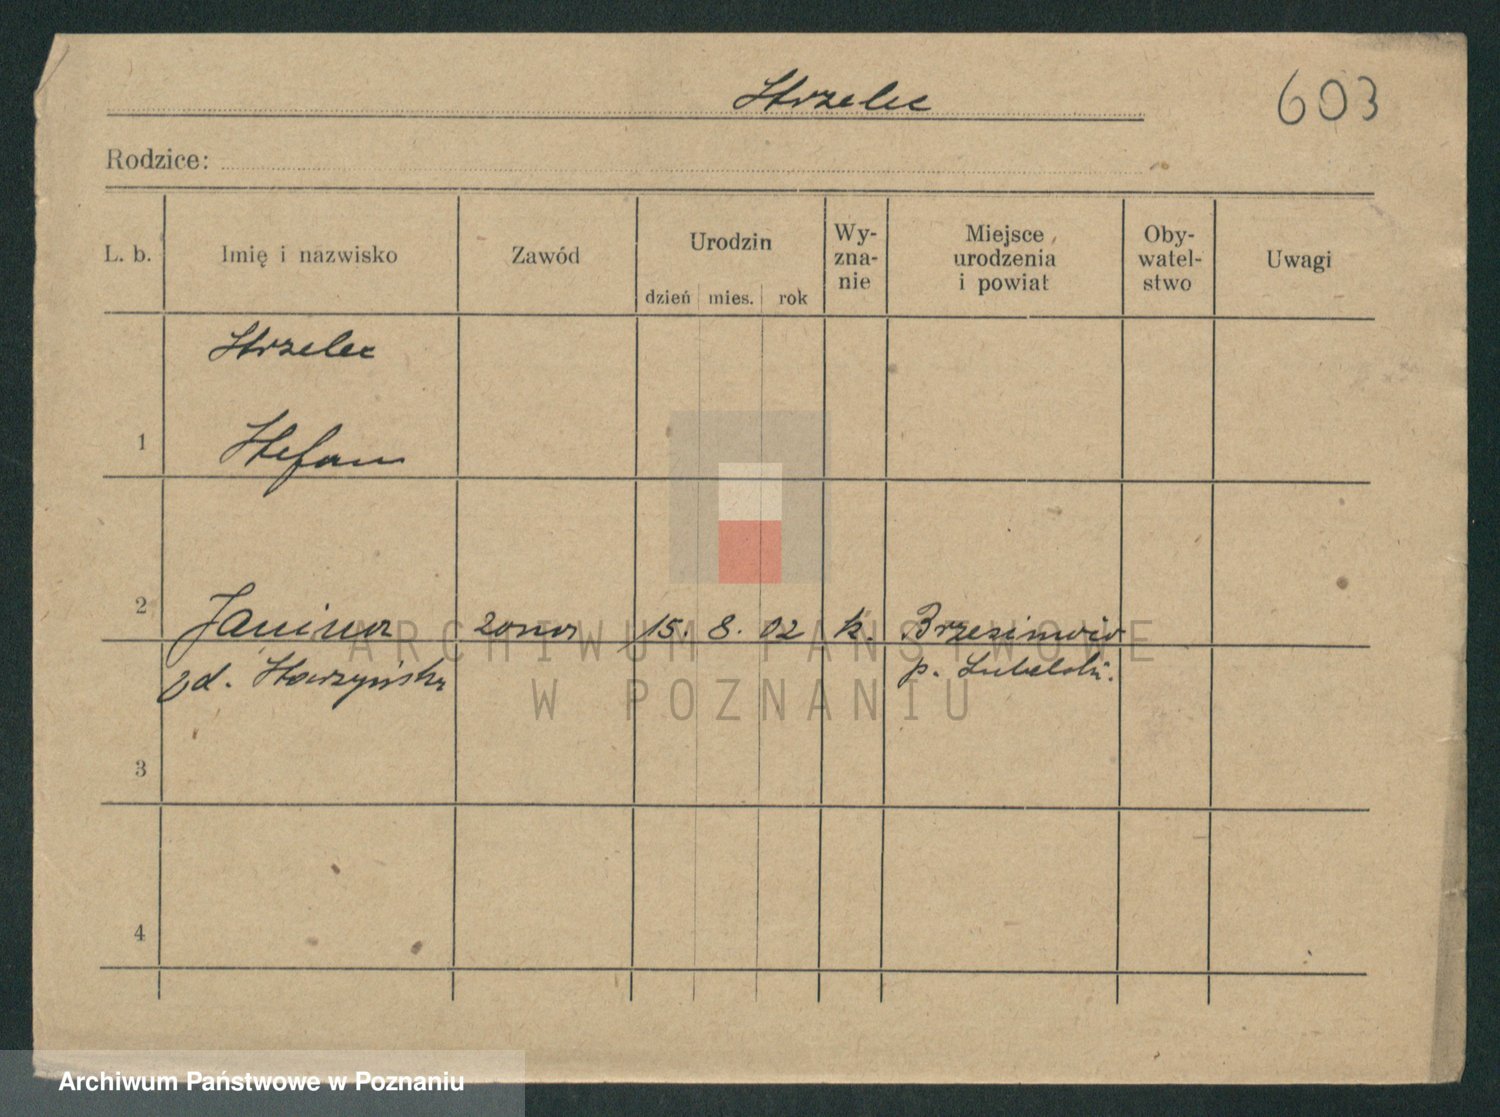 Strzelec
603
Rodzice:
L. b.
Imię i nazwisko
Zawód
Urodzin
dzień mies. rok
Wy-
zna-
nie
Miejsce
urodzenia
i powiat
Oby-
watel-
stwo
Uwagi
Strzelec
1 Stefan
2 Janina żona 15. 8. 02 k.
p. Lubelski.
3
4
ARCHIWUM PAŃSTWOWE
W POZNANIU
Archiwum Państwowe w Poznaniu